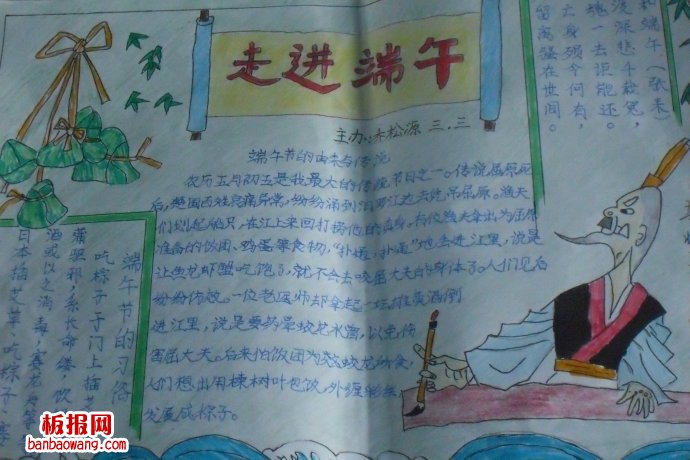 走进端午
主办:朱松源 三.三
端午节的由来与传说
农历五月初五是我最大的传统节日之一。传说屈原死
后,楚国百姓哀痛异常,纷纷涌到汨罗江边去凭吊屈原。渔夫
们划起船只,在江上来回打捞他的真身。有位渔夫拿出为屈原
准备的饭团、鸡蛋等食物,“扑通、扑通”地丢进江里,说是
让鱼龙虾蟹吃饱了,就不会去咬屈大夫的身体了。人们见后
纷纷仿效。一位老医师却拿起一坛雄黄酒倒
进江里,说是要药晕蛟龙水兽,以免伤
害屈大夫。后来怕饭团为蛟龙所食,
人们想出用楝树叶包饭,外缠彩丝,
发展成棕子。
和端午(张耒)
深悲千载冤,
魂一去讵能还。
亡身殒今何有,
留离骚在世间。
端午节的习俗
吃棕子于门上插艾
蒲驱邪,系长命缕,饮
酒或以之消毒,赛龙舟等
日本插艾草,吃粽子,赛
板报网
banbaowang.com